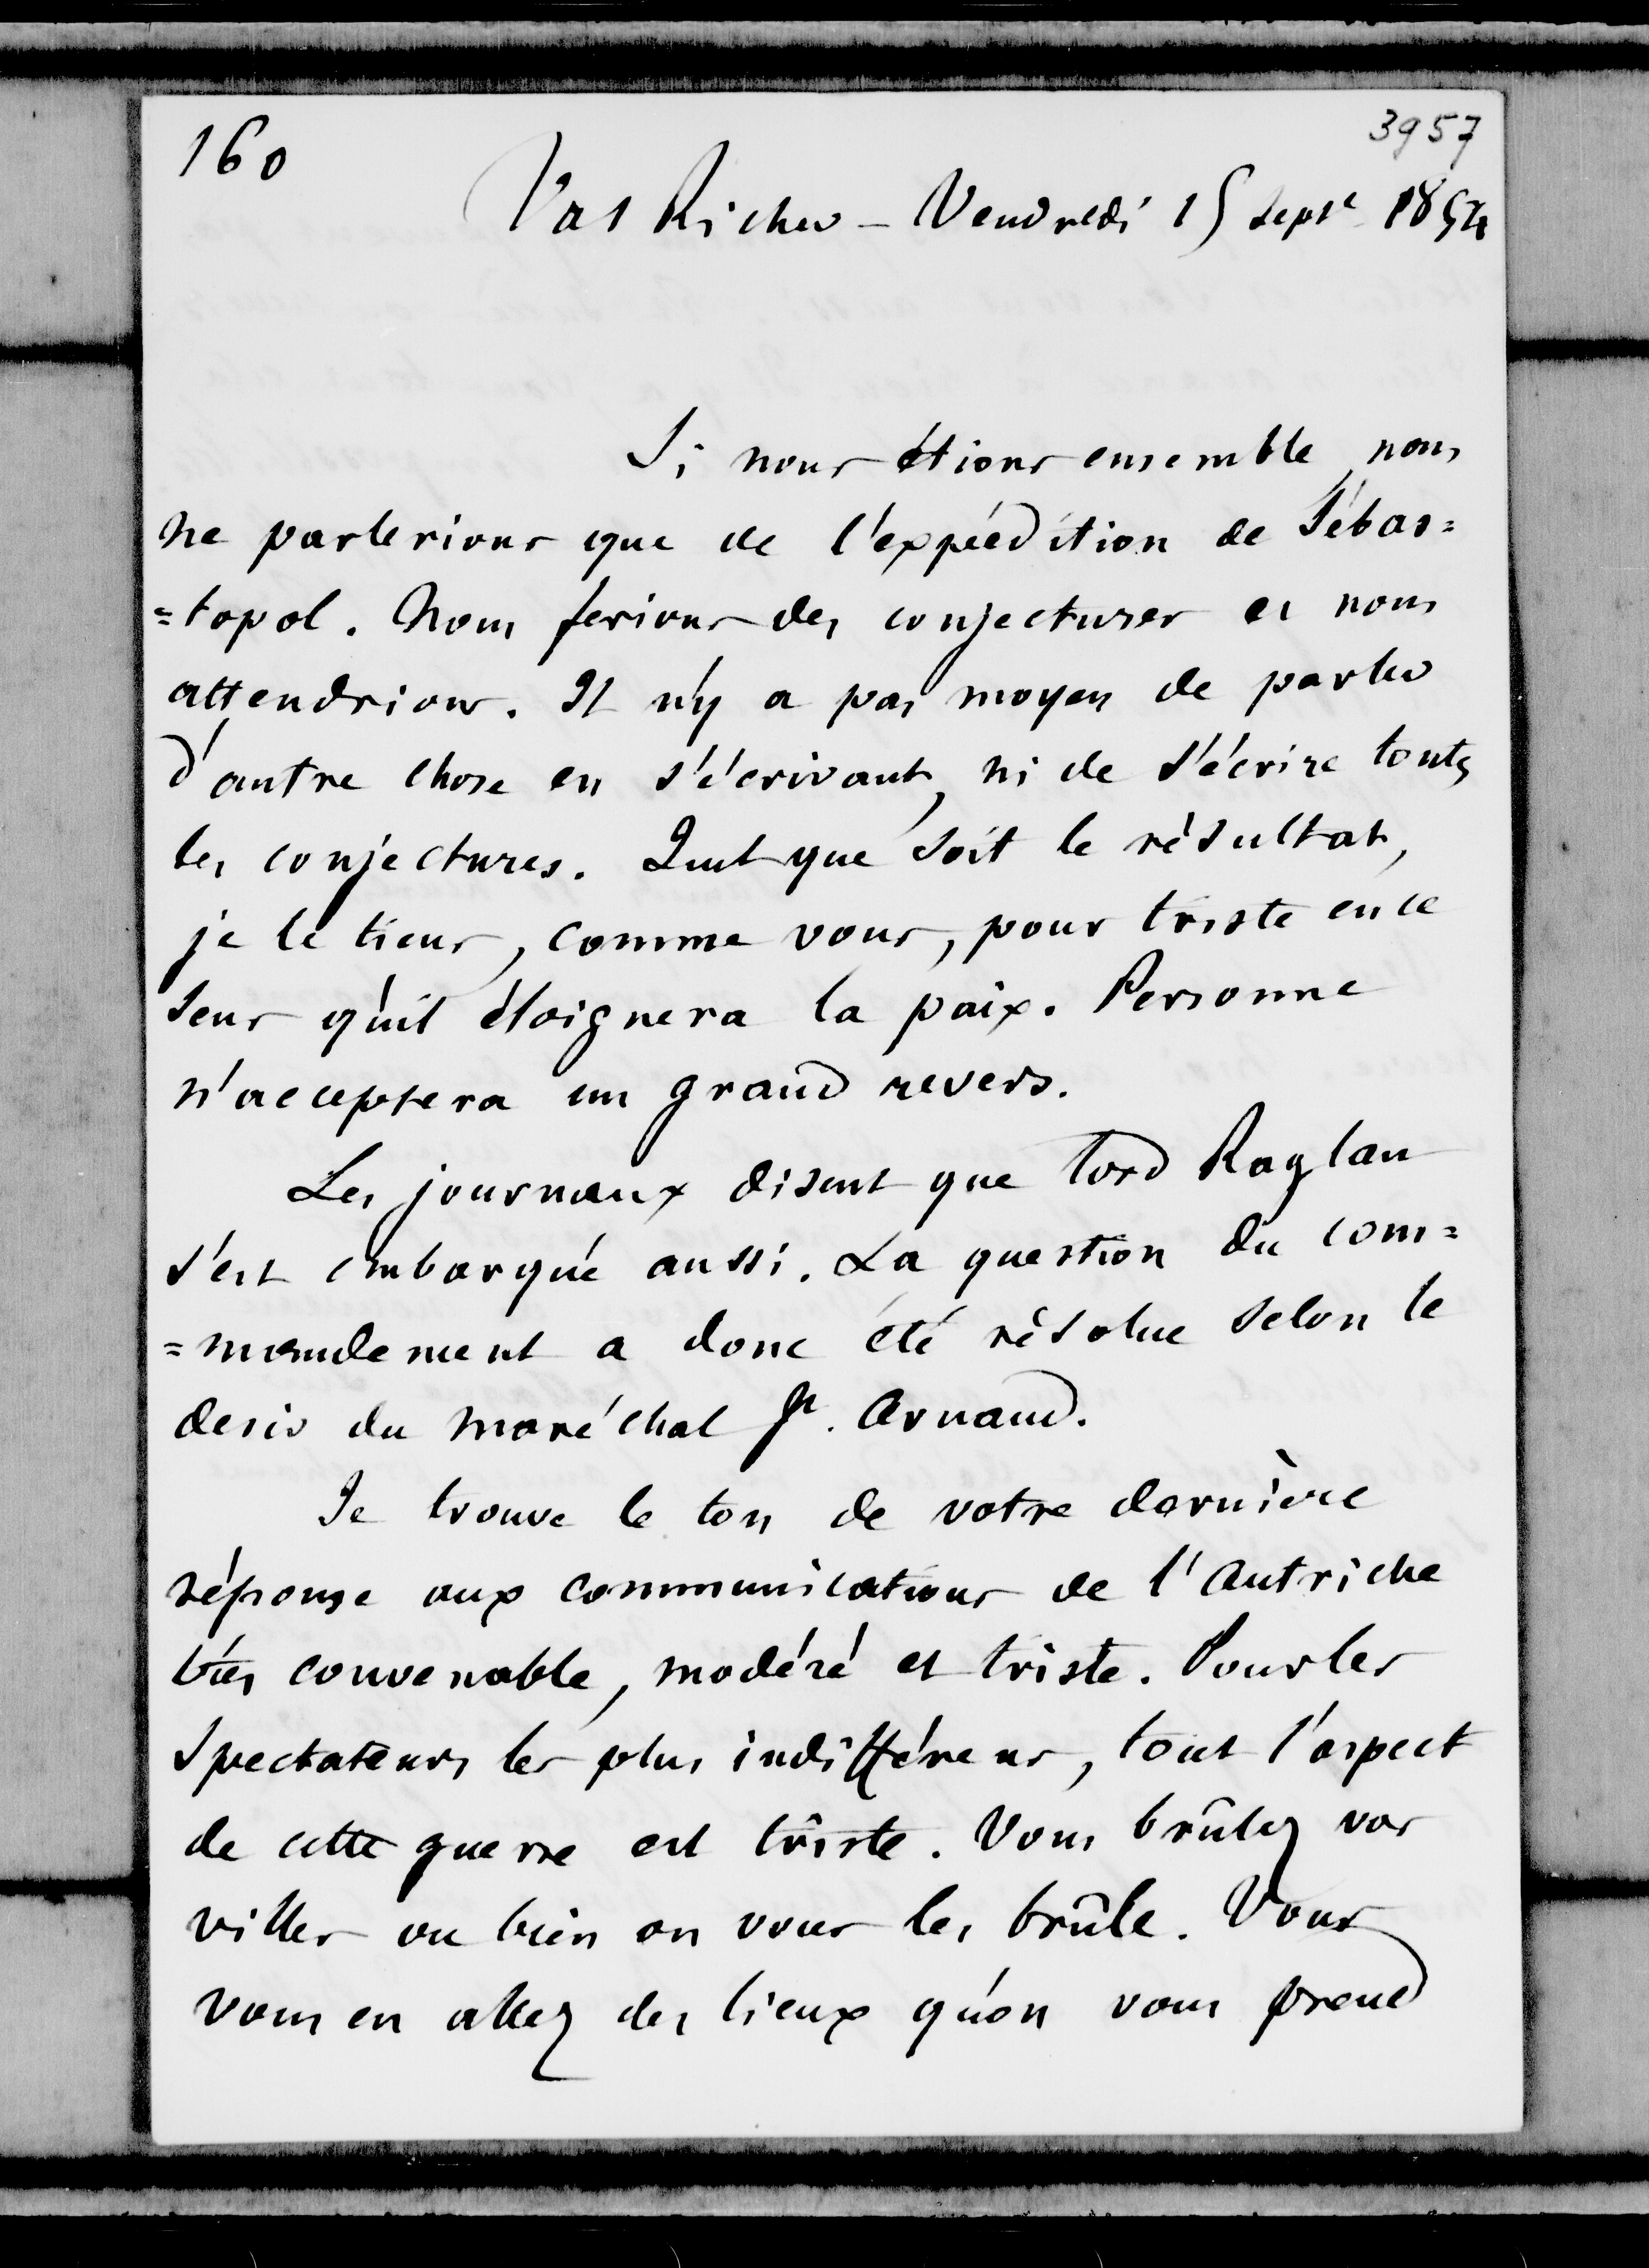 160
3957
Val Richer - Vendredi 15 Sept 1854
Si nous étions ensemble, nous
ne parlerions que de l'expédition de Sébas=
=topol. Nous ferions des conjectures et nous
attendrions. Il n'y a pas moyen de parler
d'autre chose en s'écrivant, ni de s'écrire toutes
les conjectures. Quel que soit le résultat,
je le tiens, comme vous, pour triste en ce
sens qu'il éloignera la paix. Personne
n'acceptera un grand revers.
Les journaux disent que Lord Raglan
s'est embarqué aussi. La question du com=
=mandement a donc été résolue selon le
desir du maréchal St. Arnaud.
Je trouve le ton de votre dernière
réponse aux communications de l'Autriche
très convenable, modéré et triste. Pour les
spectateurs les plus indifférens, tout l'aspect
de cette guerre est triste. Vous brûlez vos
villes ou bien on vous les brûle. Vous
vous en allez des lieux qu'on vous prend